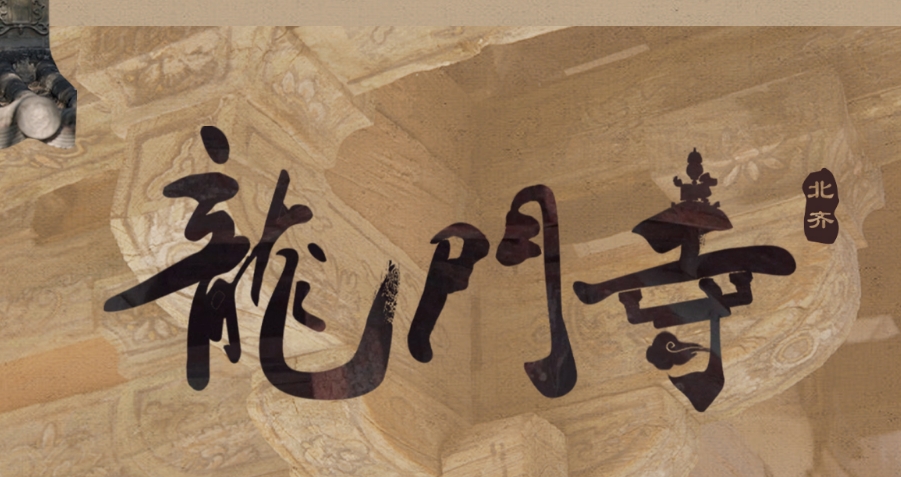 龍門寺
北齐